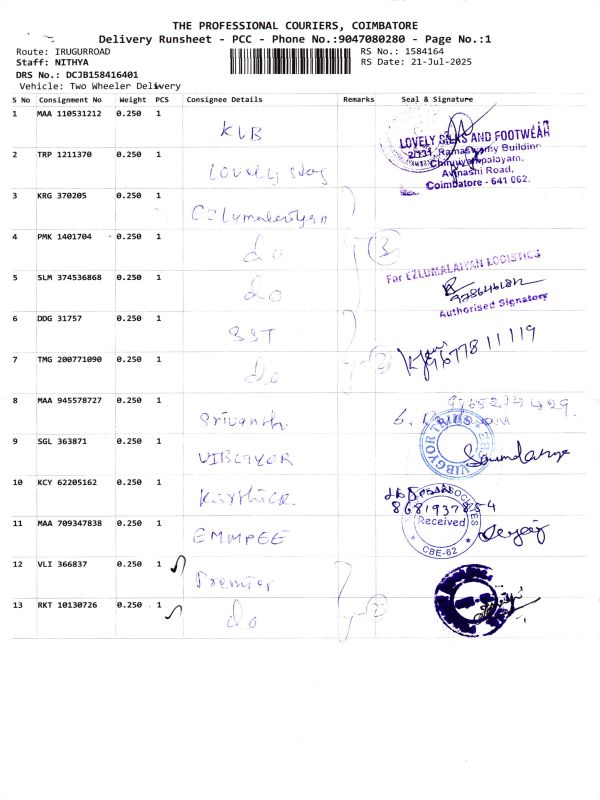 THE PROFESSIONAL COURIERS, COIMBATORE
Delivery Runsheet - PCC - Phone No.:9047080280 - Page No.:1
Route: IRUGURROAD
RS No.: 1584164
Staff: NITHYA
RS Date: 21-Jul-2025
DRS No.: DCJB158416401
Vehicle: Two Wheeler Delivery
S No Consignment No Weight PCS Consignee Details Remarks Seal & Signature
1 MAA 110531212 0.250 1 KLB
LOVELY SILKS AND FOOTWEAR
2/131, Ramaswamy Building
Chinniyampalayam,
Avinashi Road,
Coimbatore - 641 062.
2 TRP 1211370 0.250 1 Lovely
3 KRG 370205 0.250 1 Ezlumalaiyan
4 PMK 1401704 0.250 1 do 3
5 SLM 374536868 0.250 1 do
For EZLUMALAIYAN LOGISTICS
Authorised Signatory
6 DDG 31757 0.250 1 SST
7 TMG 200771090 0.250 1 do 2
9677811119
8 MAA 945578727 0.250 1 Srivanth
9 SGL 363871 0.250 1 VIBGYOR
VIBGYOR
Soundarya
10 KCY 62205162 0.250 1 Karthick
8681937854
Received
CBE-62
11 MAA 709347838 0.250 1 EMMPEE
12 VLI 366837 0.250 1 Premier
13 RKT 10130726 0.250 1 do 2